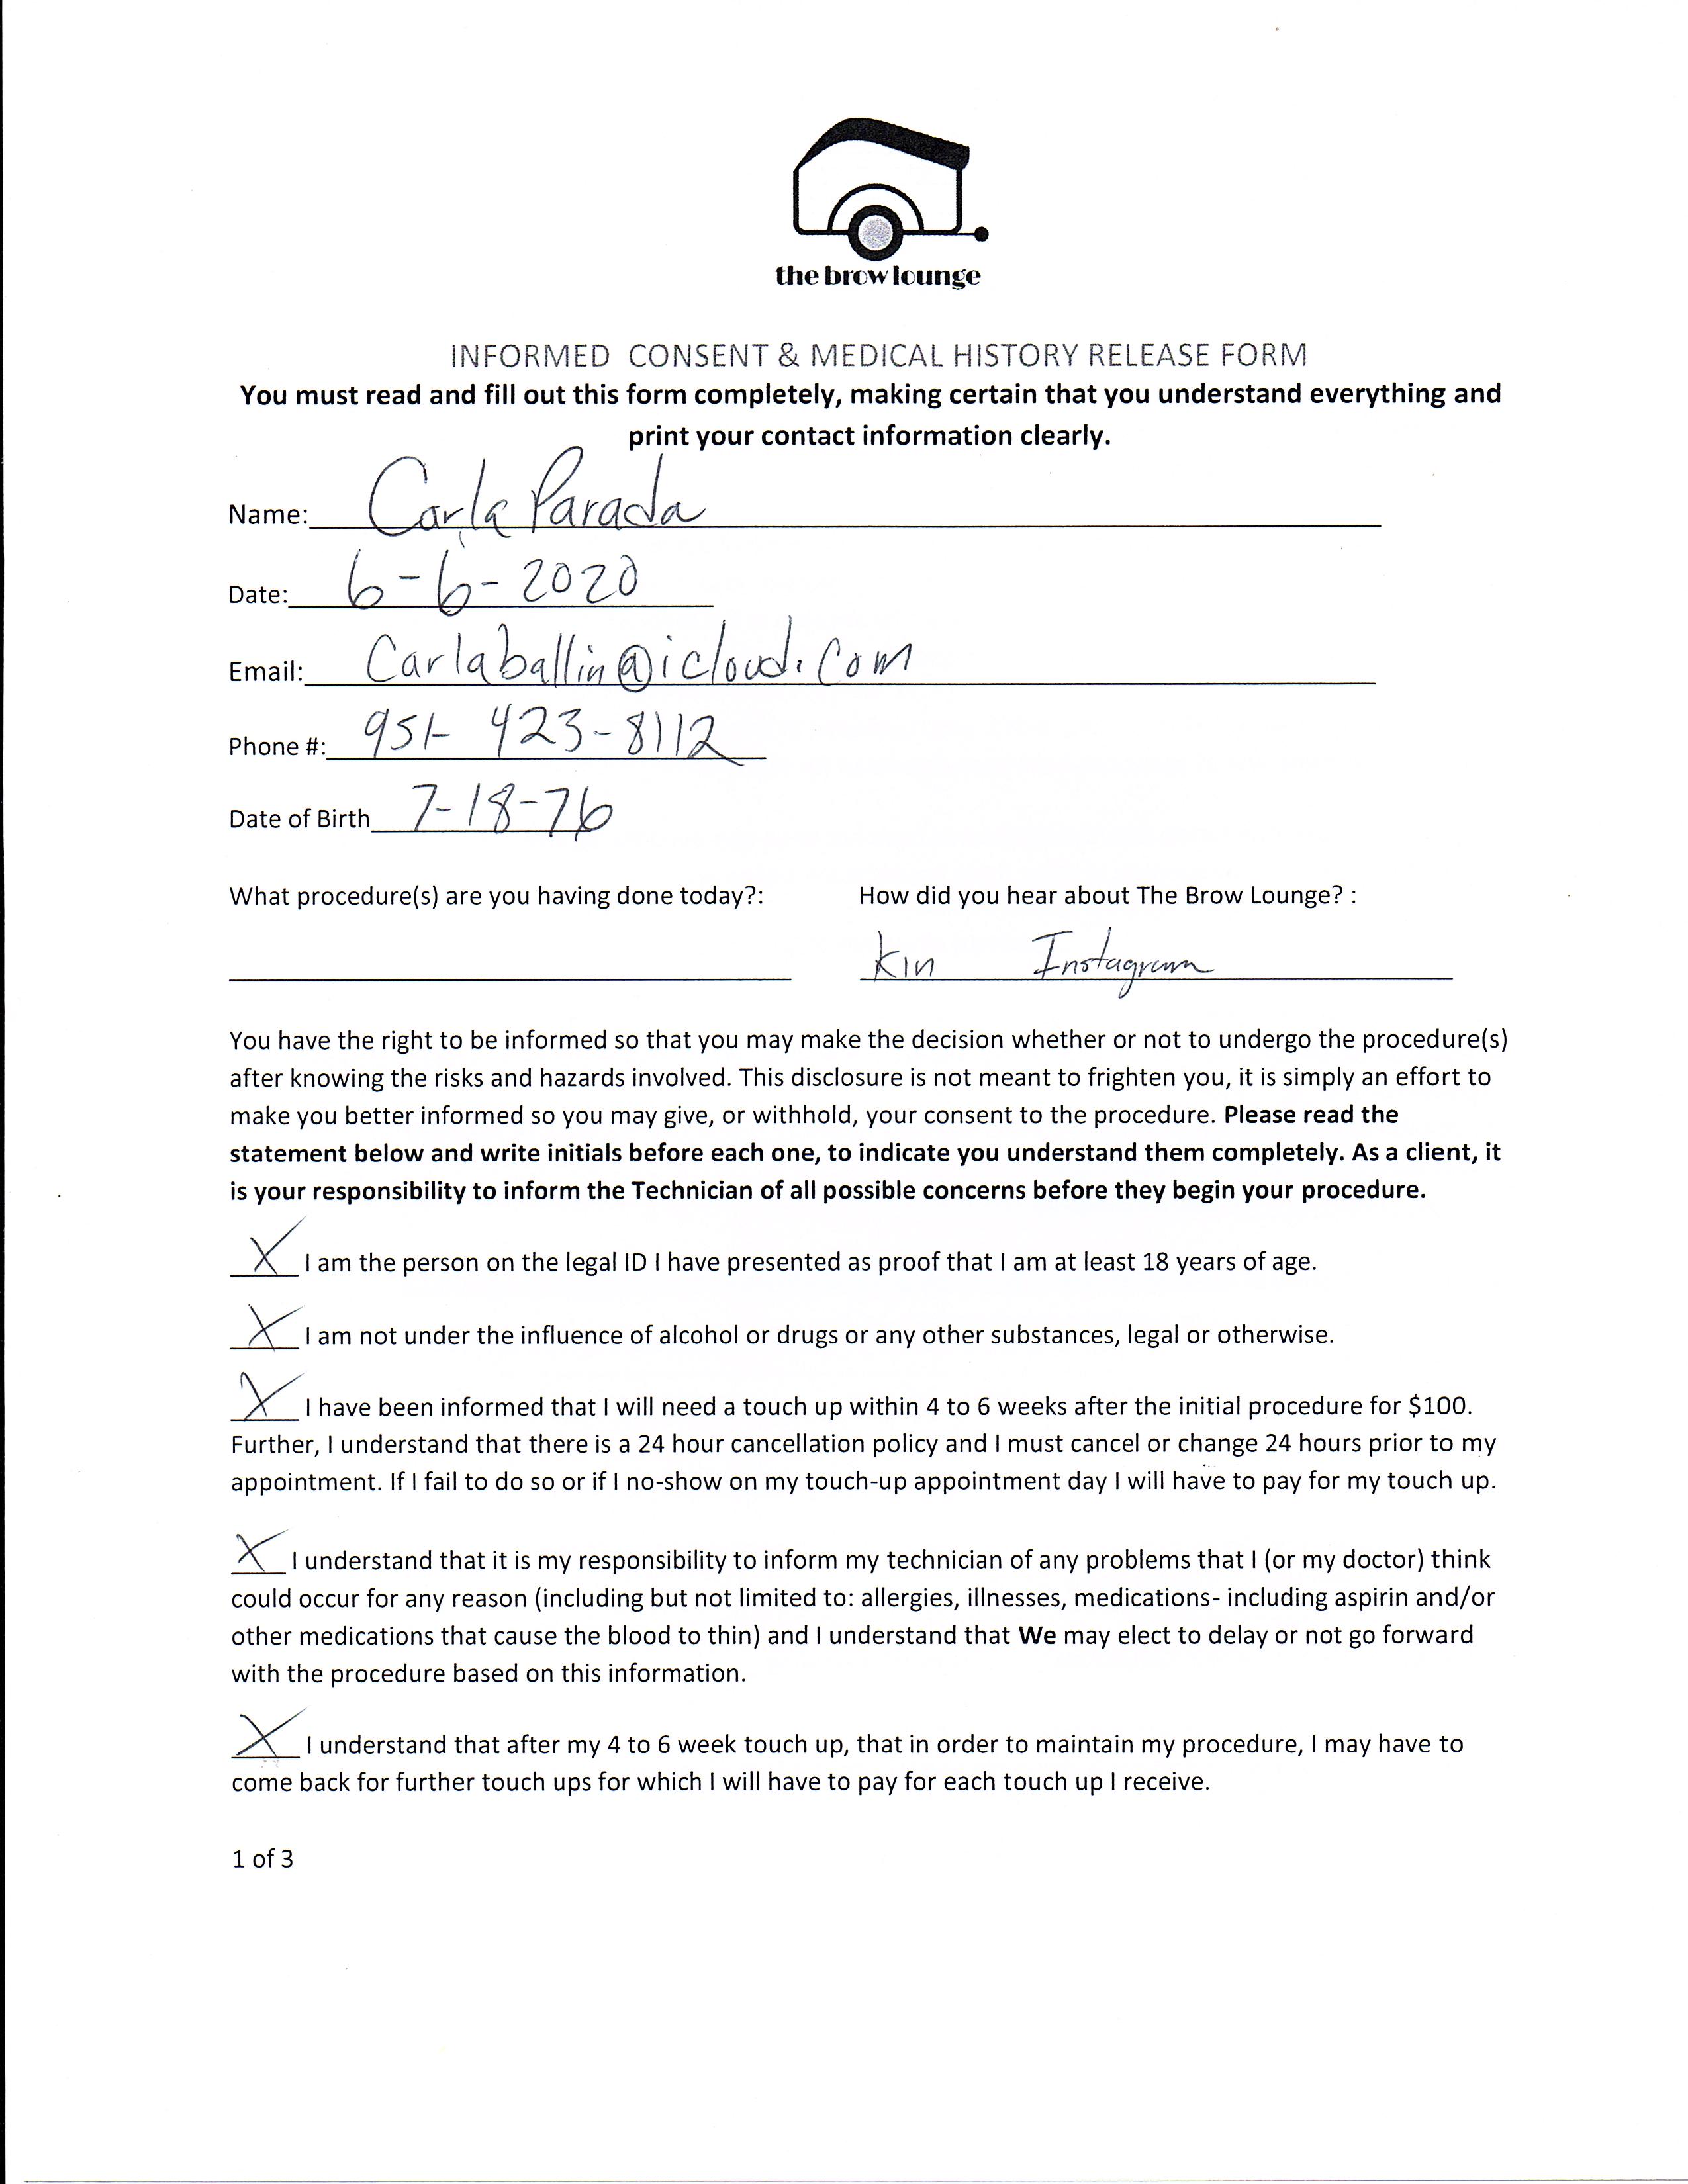 the brow lounge
INFORMED CONSENT & MEDICAL HISTORY RELEASE FORM
You must read and fill out this form completely, making certain that you understand everything and
print your contact information clearly.
Name: Carla Parada
Date: 6-6-2020
Email: Carlaballin@icloud.com
Phone #: 951-423-8112
Date of Birth 7-18-76
What procedure(s) are you having done today?: How did you hear about The Brow Lounge? :
kin Instagram
You have the right to be informed so that you may make the decision whether or not to undergo the procedure(s)
after knowing the risks and hazards involved. This disclosure is not meant to frighten you, it is simply an effort to
make you better informed so you may give, or withhold, your consent to the procedure. Please read the
statement below and write initials before each one, to indicate you understand them completely. As a client, it
is your responsibility to inform the Technician of all possible concerns before they begin your procedure.
X I am the person on the legal ID I have presented as proof that I am at least 18 years of age.
X I am not under the influence of alcohol or drugs or any other substances, legal or otherwise.
X I have been informed that I will need a touch up within 4 to 6 weeks after the initial procedure for $100.
Further, I understand that there is a 24 hour cancellation policy and I must cancel or change 24 hours prior to my
appointment. If I fail to do so or if I no-show on my touch-up appointment day I will have to pay for my touch up.
X I understand that it is my responsibility to inform my technician of any problems that I (or my doctor) think
could occur for any reason (including but not limited to: allergies, illnesses, medications- including aspirin and/or
other medications that cause the blood to thin) and I understand that We may elect to delay or not go forward
with the procedure based on this information.
X I understand that after my 4 to 6 week touch up, that in order to maintain my procedure, I may have to
come back for further touch ups for which I will have to pay for each touch up I receive.
1 of 3